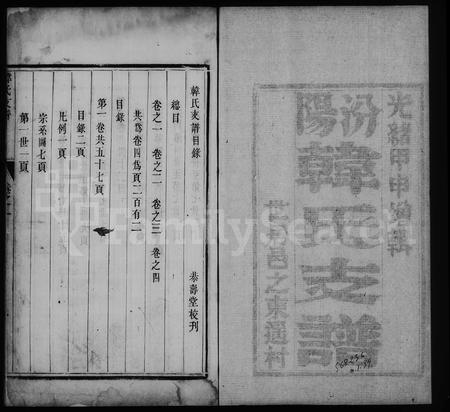 光緒甲申
汾陽韓氏支譜
邑之東通村
韓氏支譜目錄
恭壽堂校刊
總目
卷之一 卷之二 卷之三 卷之四
共為卷四為頁二百有二
目錄
第一卷共五十七頁
目錄二頁
凡例一頁
宗系圖七頁
第一世一頁
FamilySearch